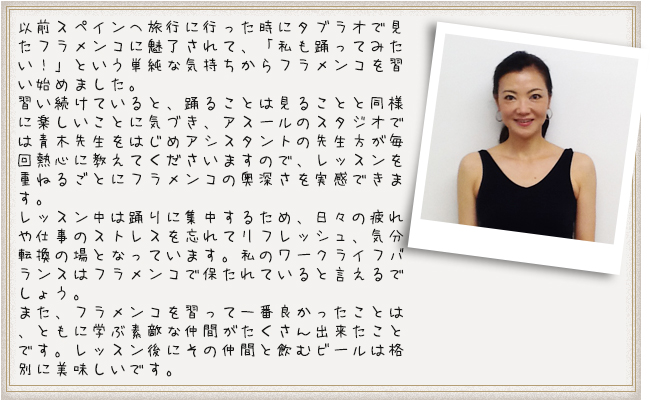 以前スペインへ旅行に行った時にタブラオで見
たフラメンコに魅了されて、「私も踊ってみた
い！」という単純な気持ちからフラメンコを習
い始めました。
習い続けていると、踊ることは見ることと同様
に楽しいことに気づき、アスールのスタジオで
は青木先生をはじめアシスタントの先生方が毎
回熱心に教えてくださいますので、レッスンを
重ねるごとにフラメンコの奥深さを実感できま
す。
レッスン中は踊りに集中するため、日々の疲れ
や仕事のストレスを忘れてリフレッシュ、気分
転換の場となっています。私のワークライフバ
ランスはフラメンコで保たれていると言えるで
しょう。
また、フラメンコを習って一番良かったことは
、ともに学ぶ素敵な仲間がたくさん出来たこと
です。レッスン後にその仲間と飲むビールは格
別に美味しいです。